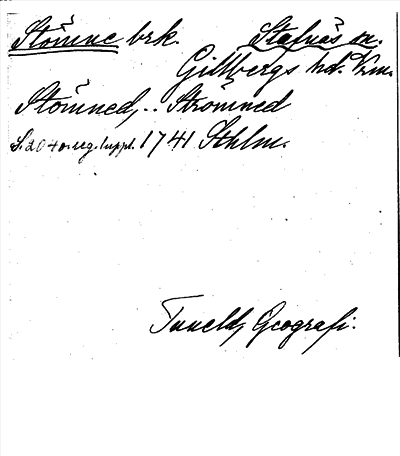 Stömne brk. Stafnäs sn.
Gillbergs hd. Vrm.
Stömned, .. Strömned
S. 204 o. reg. t. uppl. 1741 Sthlm.
Tuneld, Geografi.